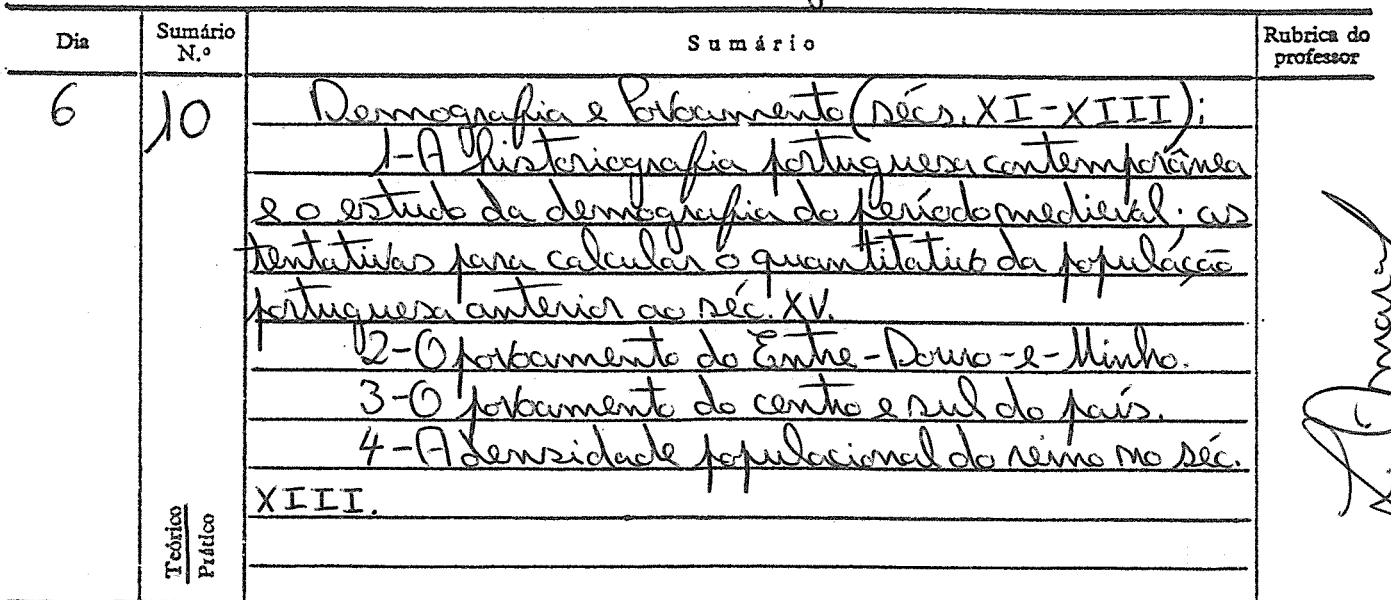 Dia
Sumário N.º
Sumário
Rubrica do professor
6
10
Demografia e Povoamento (sécs. XI-XIII):
1-A historiografia portuguesa contemporânea
e o estudo da demografia do período medieval: as
tentativas para calcular o quantitativo da população
portuguesa anterior ao séc. XV.
2-O povoamento do Entre-Douro-e-Minho.
3-O povoamento do centro e sul do país.
4-A densidade populacional do reino no séc.
XIII.
Teórico
Prático